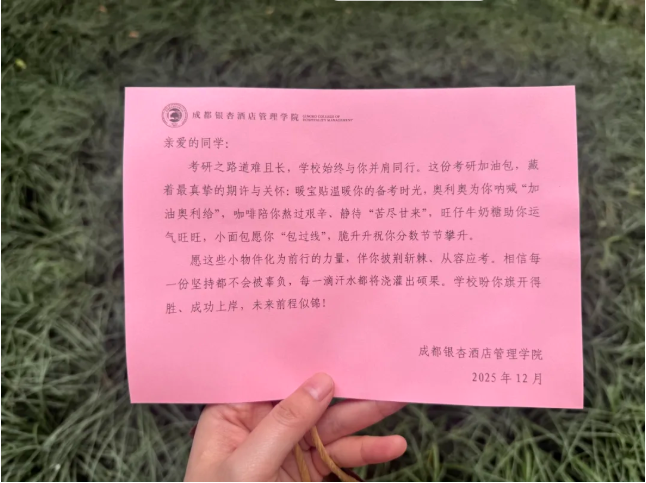 成都银杏酒店管理学院
亲爱的同学：
考研之路道难且长，学校始终与你并肩同行。这份考研加油包，藏
着最真挚的期许与关怀：暖宝贴温暖你的备考时光，奥利奥为你呐喊“加
油奥利给”，咖啡陪你熬过艰辛、静待“苦尽甘来”，旺仔牛奶糖助你运
气旺旺，小面包愿你“包过线”，脆升升祝你分数节节攀升。
愿这些小物件化为前行的力量，伴你披荆斩棘、从容应考。相信每
一份坚持都不会被辜负，每一滴汗水都将浇灌出硕果。学校盼你旗开得
胜、成功上岸，未来前程似锦！
成都银杏酒店管理学院
2025 年 12 月